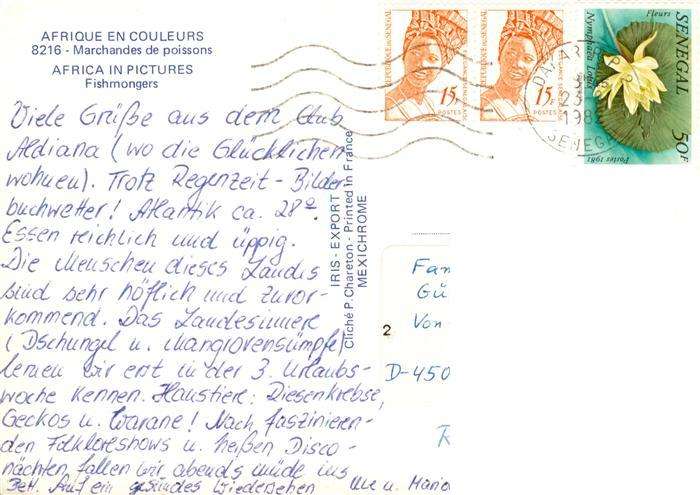 AFRIQUE EN COULEURS
8216 - Marchandes de poissons
AFRICA IN PICTURES
Fishmongers
Viele Grüße aus dem Club
Aldiana (wo die Glücklichen
wohnen). Trotz Regenzeit - Bilder
buchwetter! Atlantik ca. 28°.
Essen reichlich und üppig.
Die Menschen dieses Landes
sind sehr höflich und zuvor-
kommend. Das Landesinnere
(Dschungel u. Mangrovensümpfe)
lernen wir erst in der 3. Urlaubs-
woche kennen. Haustiere: Riesenkrebse,
Geckos u. Warane! Nach faszinieren-
den Folkloreshows u. heißen Disco-
nächten fallen wir abends müde ins
Bett. Auf ein gesundes Wiedersehen
Ute u. Mario
IRIS - EXPORT
Cliché P. Chareton - Printed in France
MEXICHROME
REPUBLIQUE DU SENEGAL
15F
POSTES
REPUBLIQUE DU SENEGAL
15F
POSTES
DAKAR
23
SENEGAL
Fleurs
Nymphaea Lotus
SENEGAL
Postes 1982
50F
Fam
Gü
Von
2
D-450